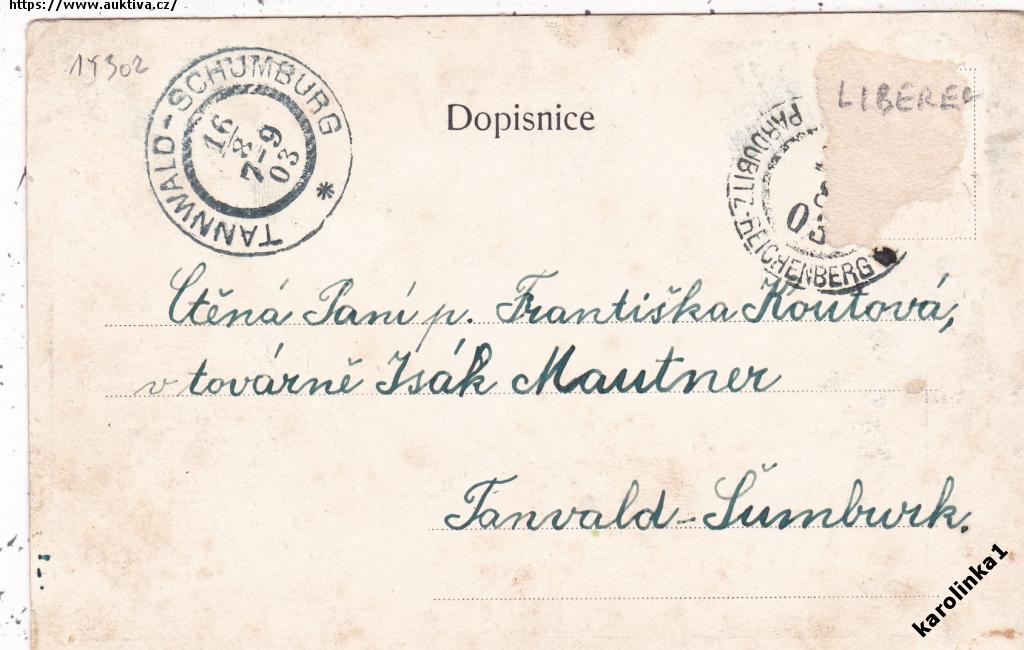 https://www.auktiva.cz/
15302
TANNWALD-SCHUMBURG *
16
8
7-9
03
Dopisnice
LIBEREC
PARDUBITZ-REICHENBERG
03
Ctěná Paní p. Františka Koutová,
v továrně Isák Mautner
Tanvald-Šumburk.
karolinka1